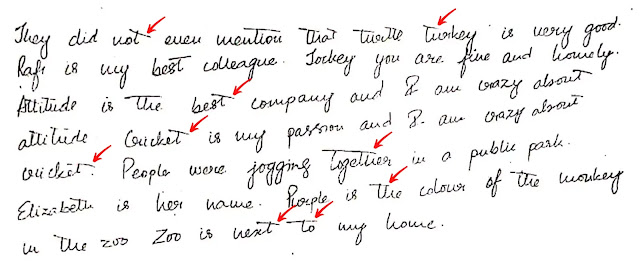 They did not even mention that turtle turkey is very good.
Rafi is my best colleague. Jockey you are fine and homely.
Attitude is the best company and I am crazy about
attitude Cricket is my passion and I am crazy about
cricket. People were jogging together in a public park.
Elizabeth is her name. Purple is the colour of the monkey
in the zoo Zoo is next to my home.